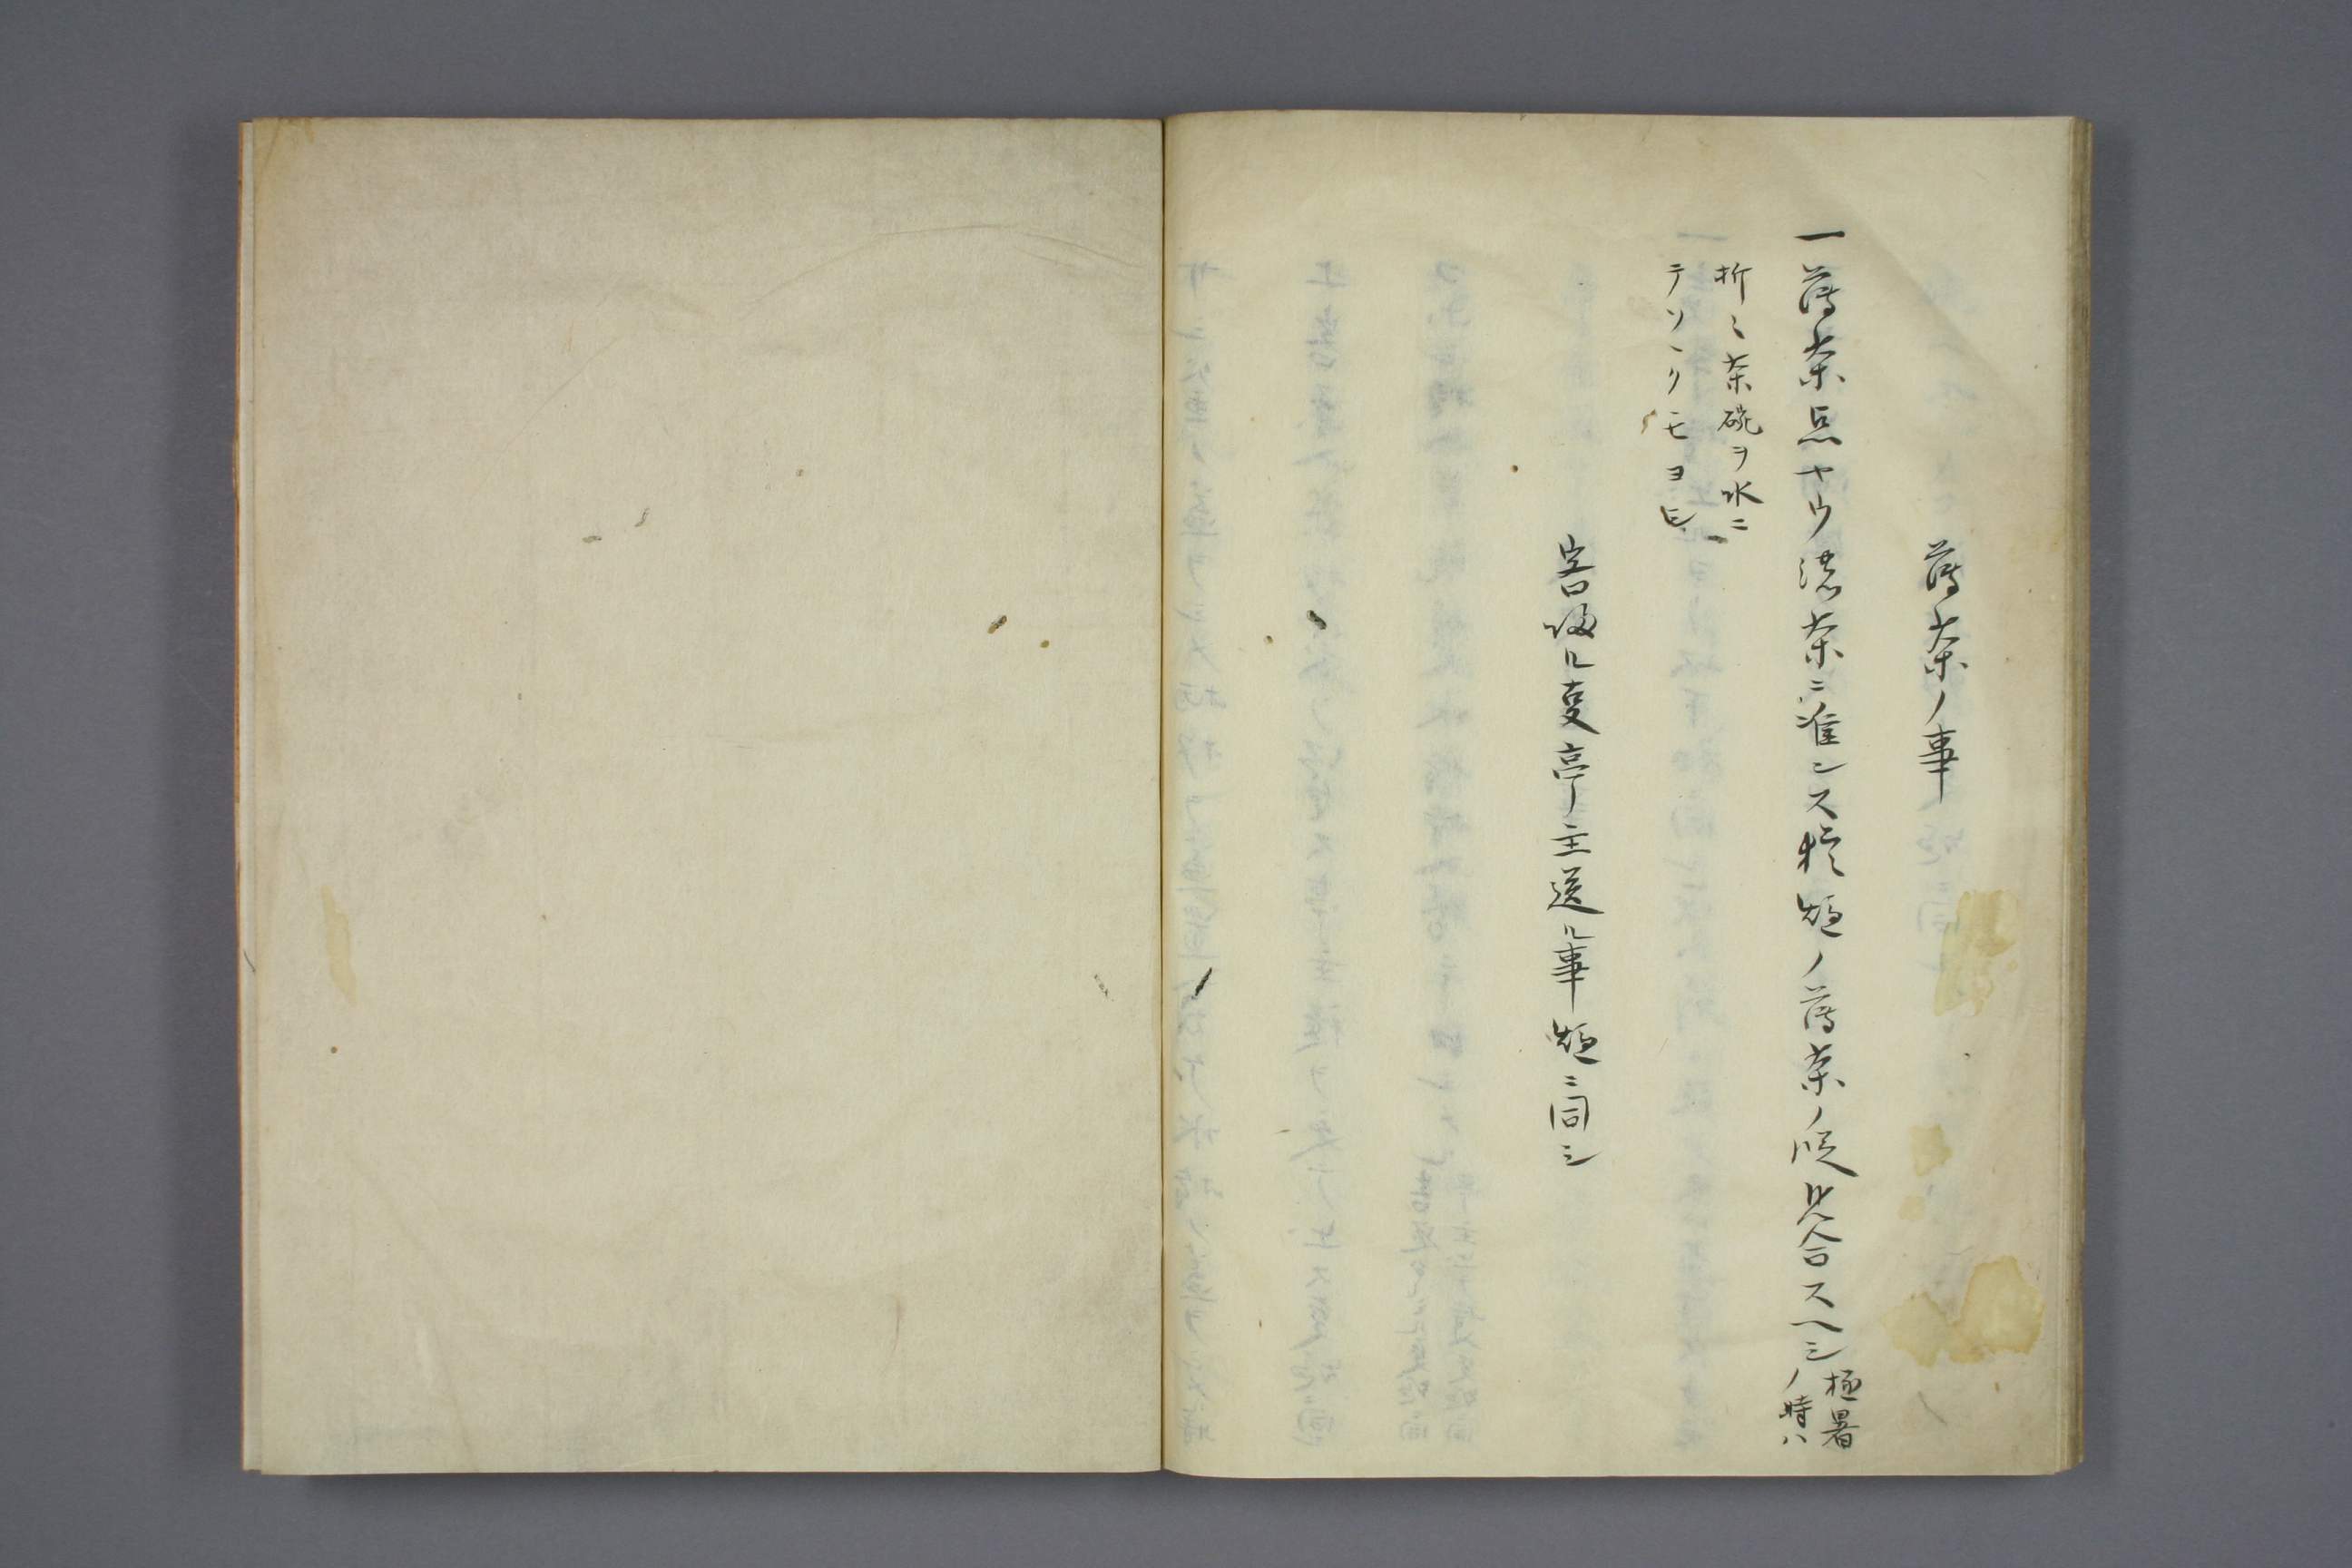 薄茶ノ事
一薄茶点ヤウ濃茶ニ准シス猶炉ノ薄茶ノ段見合スヘシ
極暑
ノ時ハ
折々茶碗ヲ水ニ
テソヽクモヨシ
客帰ル叓亭主送ル事炉ニ同シ